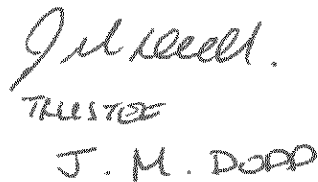 TRUSTEE
J. M. DODD